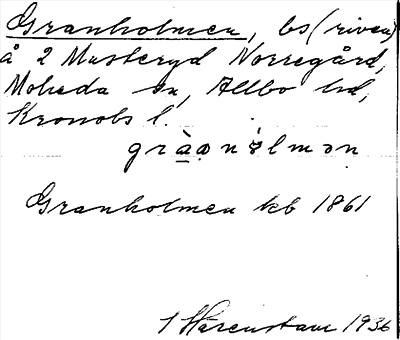 Granholmen, bs (riven)
å 2 Musteryd Norregård,
Moheda sn, Allbo hd,
Kronobs l.
gràan ólmən
Granholmen kb 1861
1 Härenstam 1936